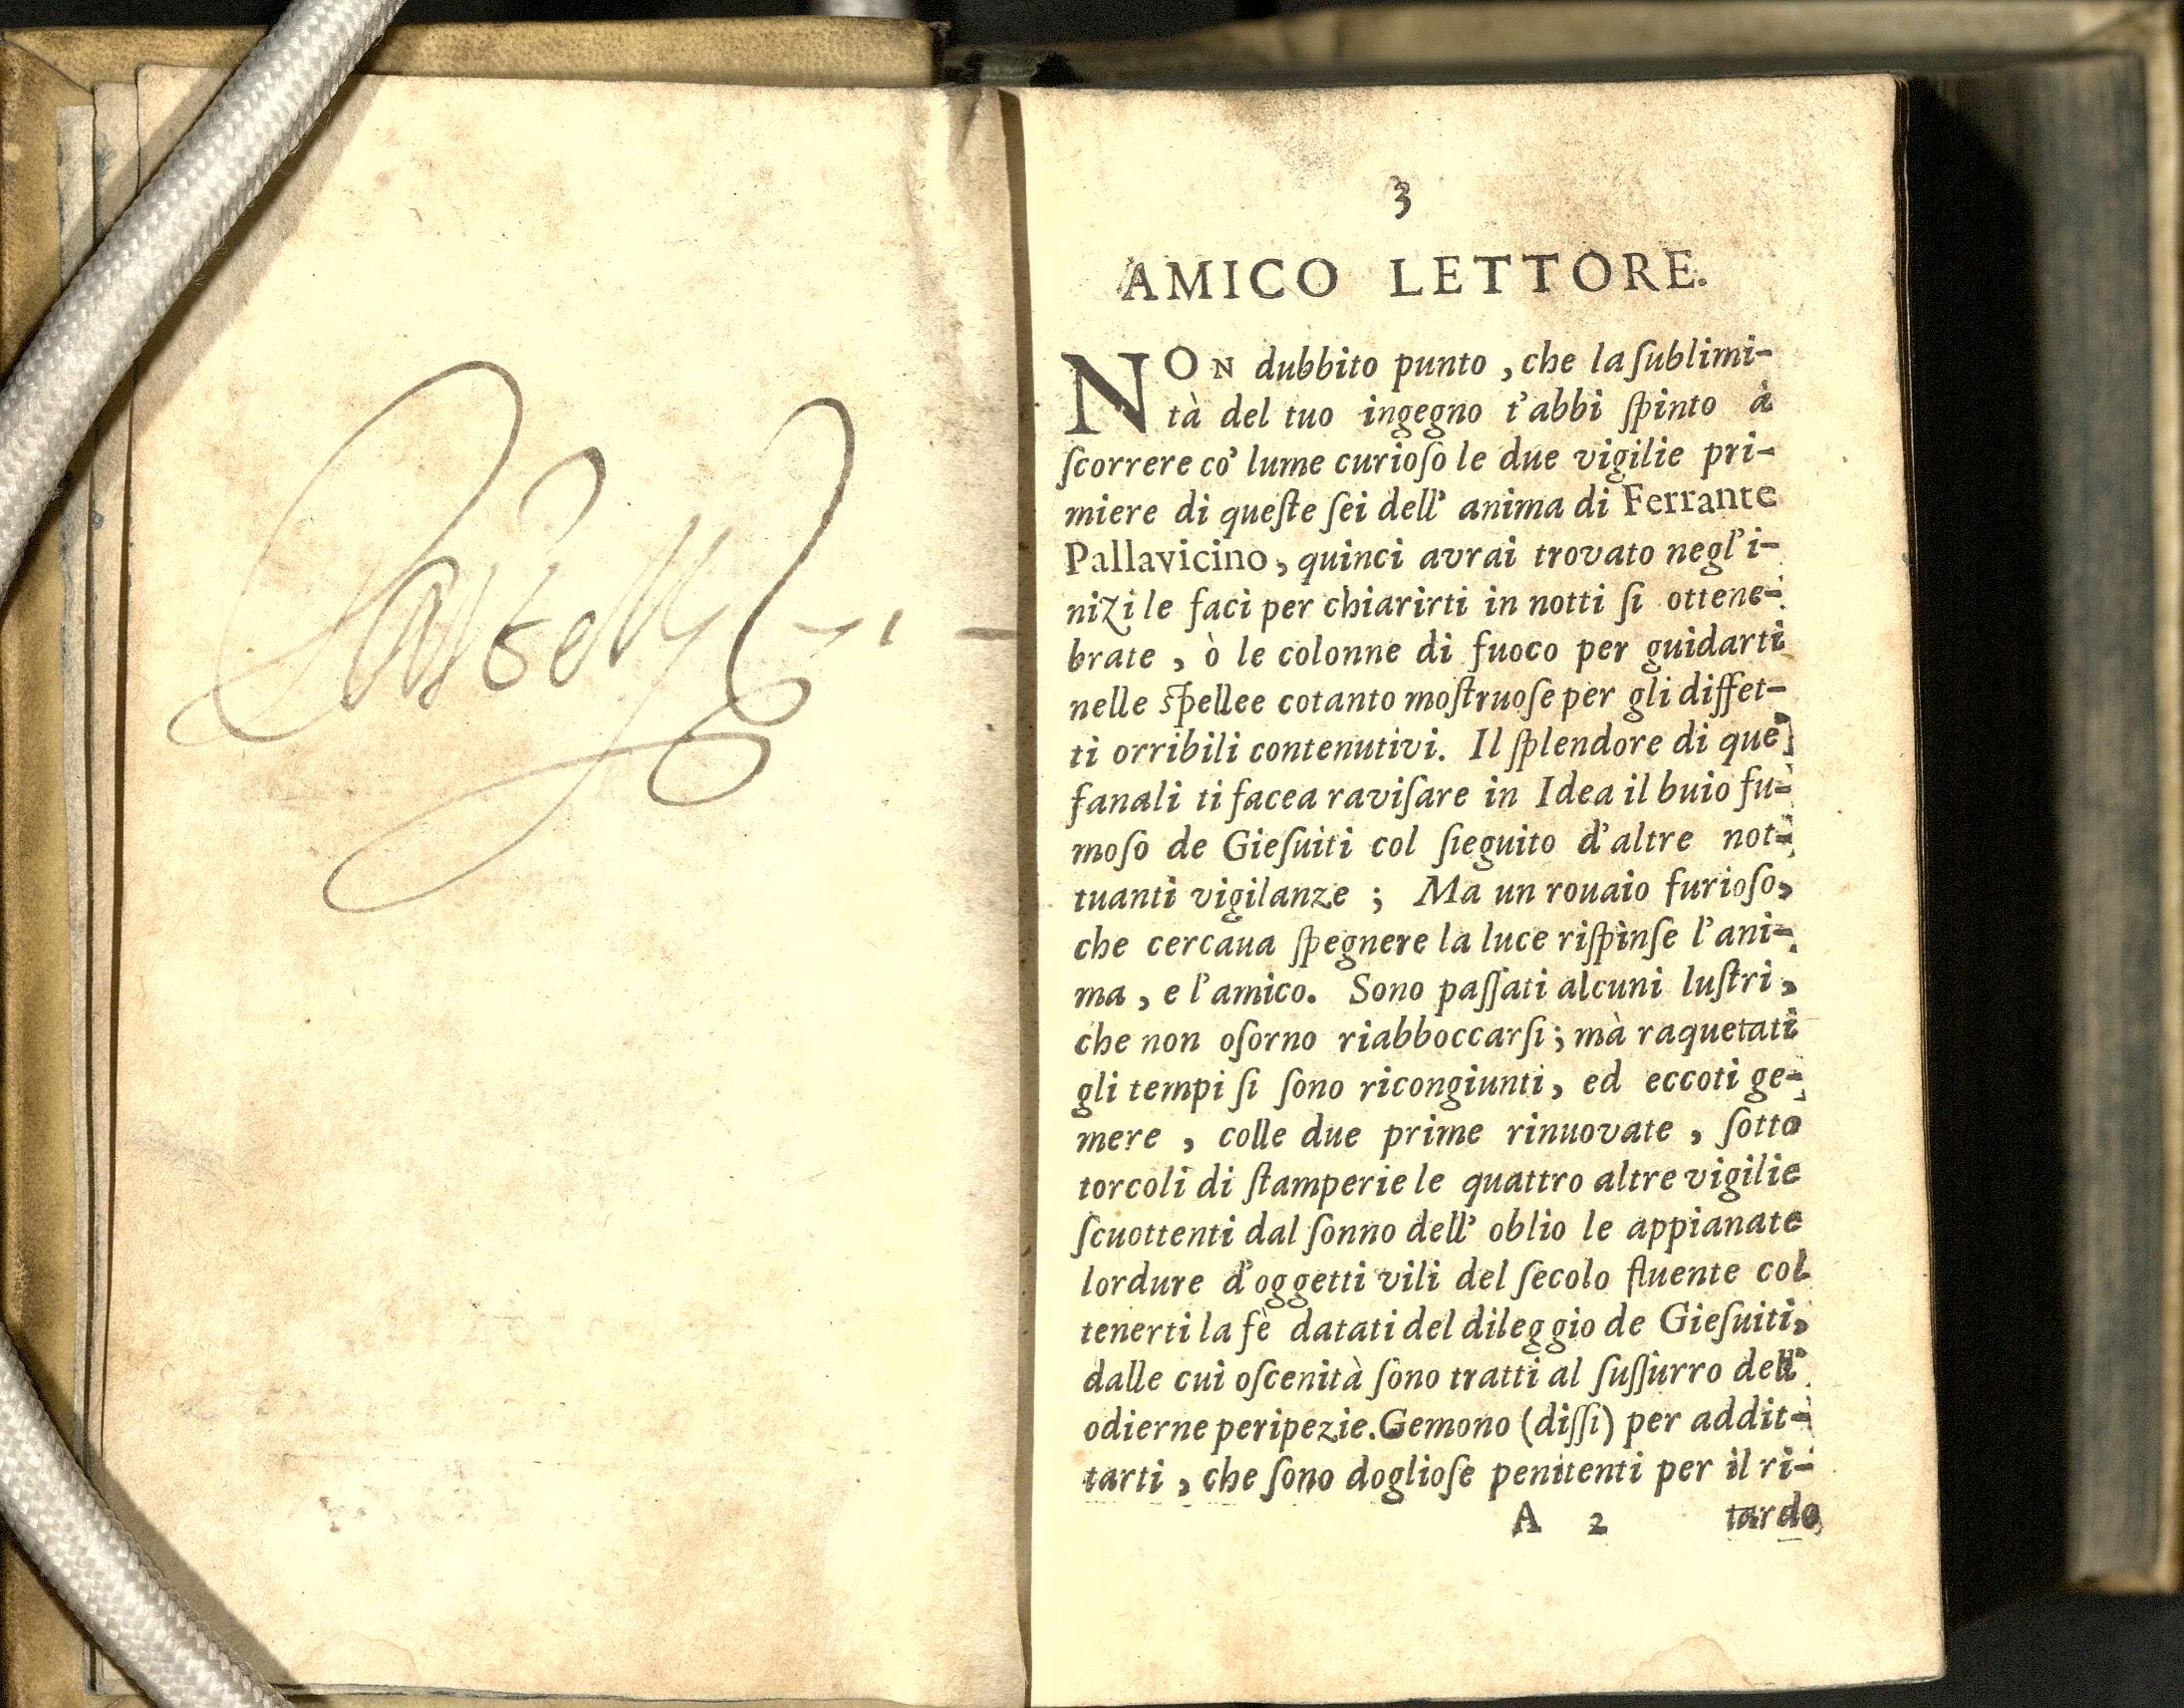 3
AMICO LETTORE.
NON dubbito punto, che la ſublimi-
tà del tuo ingegno t'abbi ſpinto à
ſcorrere co' lume curioſo le due vigilie pri-
miere di queſte ſei dell' anima di Ferrante
Pallavicino, quinci avrai trovato negl'i-
nizi le faci per chiarirti in notti ſi ottene-
brate, ò le colonne di fuoco per guidarti
nelle ſpellee cotanto moſtruoſe per gli diffet-
ti orribili contenutivi. Il ſplendore di que'
fanali ti facea raviſare in Idea il buio fu-
moſo de Gieſuiti col ſieguito d'altre not-
tuanti vigilanze; Ma un rouaio furioſo,
che cercaua ſpegnere la luce riſpinſe l'ani-
ma, e l'amico. Sono paſſati alcuni luſtri,
che non oſorno riabboccarſi; mà raquetati
gli tempi ſi ſono ricongiunti, ed eccoti ge-
mere, colle due prime rinuovate, ſotto
torcoli di ſtamperie le quattro altre vigilie
ſcuottenti dal ſonno dell' oblio le appianate
lordure d'oggetti vili del ſecolo fluente col
tenerti la fè datati del dileggio de Gieſuiti,
dalle cui oſcenità ſono tratti al ſuſſurro dell'
odierne peripezie. Gemono (diſſi) per addit-
tarti, che ſono doglioſe penitenti per il ri-
A 2 tardo